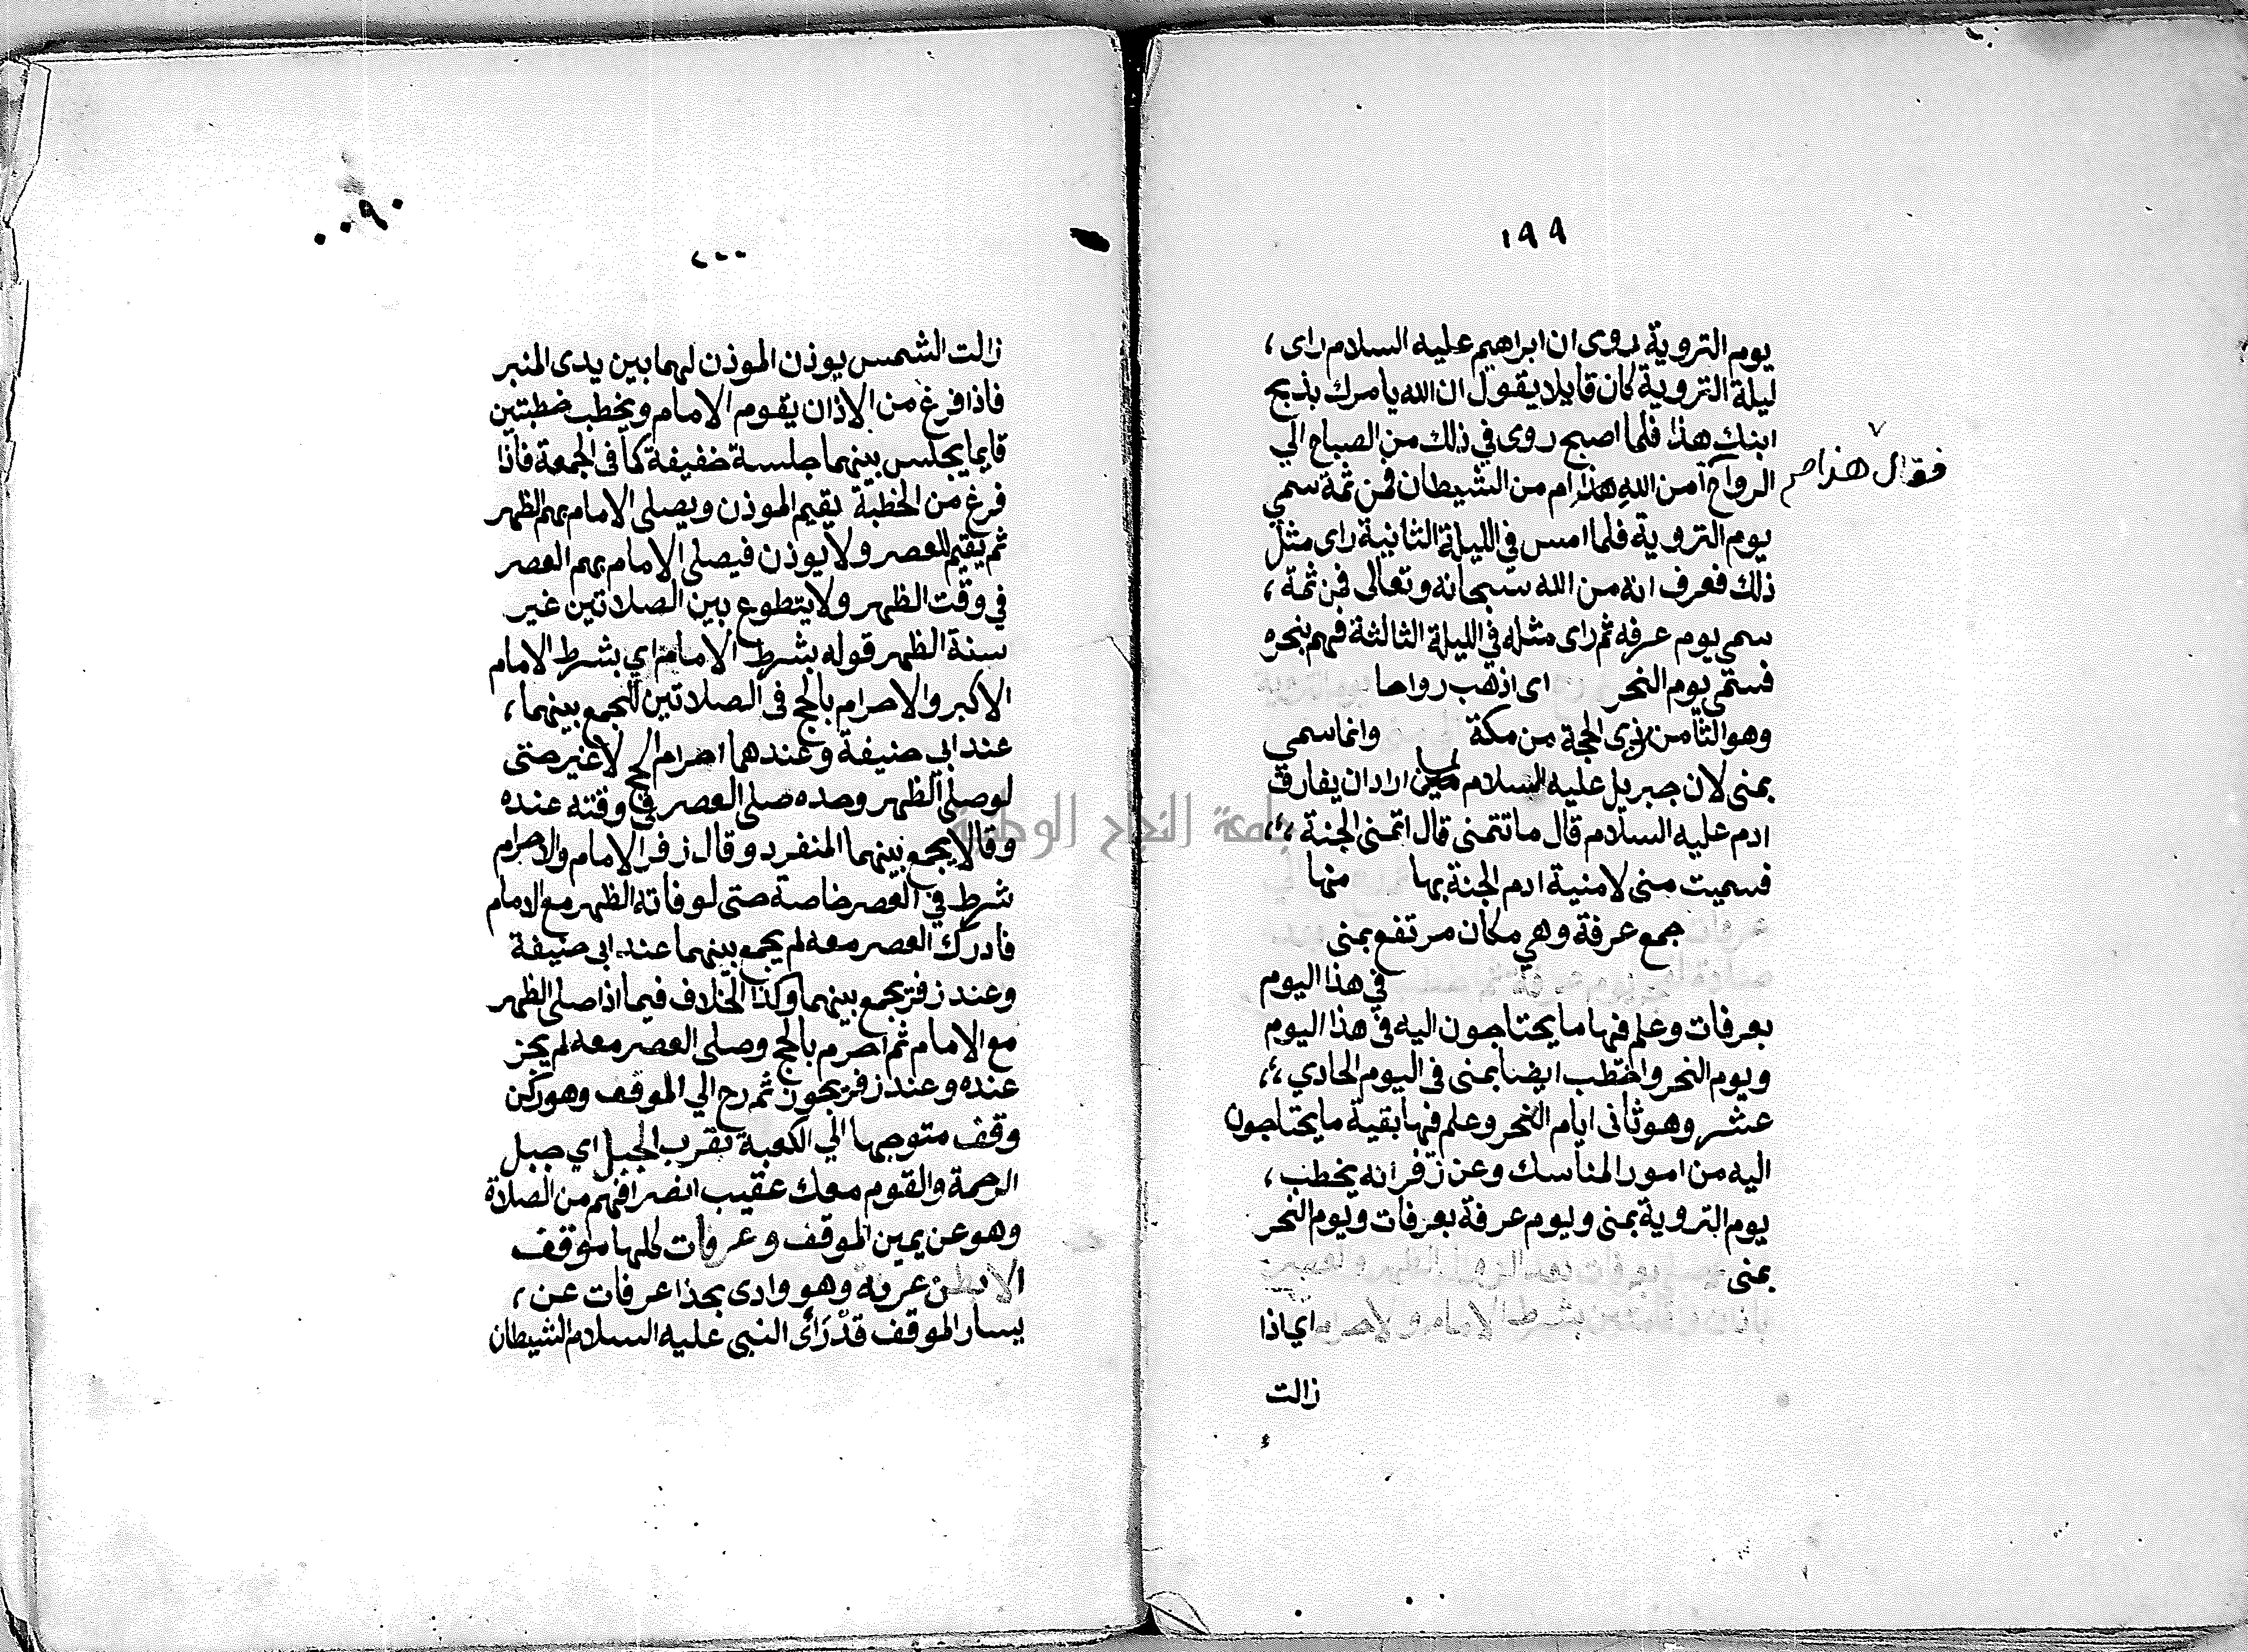 ١٩٩
يوم التروية روى ان ابراهيم عليه السلام راى،
ليلة التروية كان قايلا يقول ان الله يامرك بذبح
ابنك هذا فلما اصبح روى في ذلك من الصباح الي
الرواح أمن الله هذا ام من الشيطان فمن ثمة سمي
فقال هذا
يوم التروية فلما امس في الليلة الثانية راى مثل
ذلك فعرف انه من الله سبحانه وتعالى فمن ثمة،
سمي يوم عرفه ثم راى مثله في الليلة الثالثة فهم بنحره
فسمى يوم النحر اى اذهب رواحا
وهو الثامن ذى الحجة من مكة وانما سمي
بمنى لان جبريل عليه السلام ارادان يفارق
ادم عليه السلام قال ما تتمنى قال اتمنى الجنة
فسميت منى لامنية ادم الجنة بها منها
عرفات جمع عرفة وهي مكان مرتفع بمنى
في هذا اليوم
بعرفات وعلم فيها ما يحتاجون اليه في هذا اليوم
ويوم النحر واخطب ايضا بمنى فى اليوم الحادي
عشر وهو ثانى ايام النحر وعلم فيها بقية ما يحتاجون
اليه من امور المناسك وعن زفر انه يخطب،
يوم التروية بمنى ويوم عرفة بعرفات ويوم النحر
بمنى بعرفات بعد الزوال الظهر والعصر
باذان واقامتين بشرط الامام والاحرام اي اذا
زالت
٢٠٠
٠٩٠٠
زالت الشمس يوذن الموذن لهما بين يدى المنبر
فاذا فرغ من الاذان يقوم الامام ويخطب خطبتين
قايما يجلس بينهما جلسة خفيفة كما فى الجمعة فاذا
فرغ من الخطبة يقيم الموذن ويصلى الامام بهم الظهر
ثم يقيم للعصر ولا يوذن فيصلى الامام بهم العصر
في وقت الظهر ولا يتطوع بين الصلاتين غير
سنة الظهر قوله بشرط الامام اي بشرط الامام
الاكبر والاحرام بالحج فى الصلاتين للجمع بينهما،
عند ابي حنيفة وعندهما احرام الحج لا غير حتى
لوصلى الظهر وحده صلى العصر في وقته عنده
وقالا يجمع بينهما المنفرد وقال زفر الامام والاحرام
شرط في العصر خاصة حتى لو فاته الظهر مع الامام
فادرك العصر معه لم يجمع بينهما عند ابى حنيفة
وعند زفر يجمع بينهما وكذا الخلاف فيما اذا صلى الظهر
مع الامام ثم احرم بالحج وصلى العصر معه لم يجز
عنده وعند زفر يجوز ثم رح الي الموقف وهو ركن
وقف متوجها الي الكعبة بقرب الجبل اي جبل
الرحمة والقوم معك عقيب انصرافهم من الصلاة
وهو عن يمين الموقف وعرفات كلها موقف
الا بطن عرنه وهو وادى بحذا عرفات عن،
يسار الموقف قد رأى النبى عليه السلام الشيطان
جامعة النجاح الوطنية